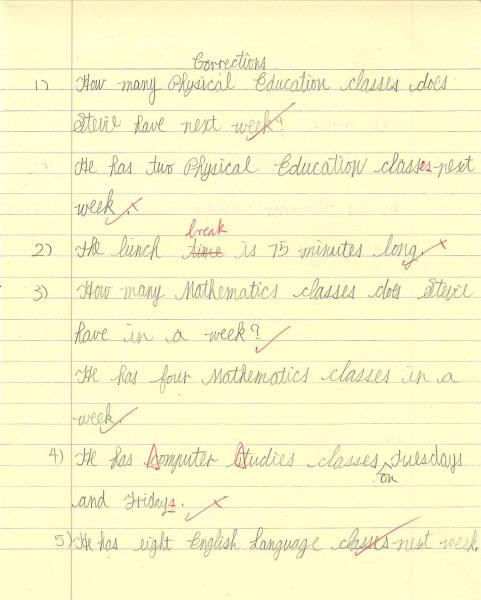 Corrections
1) How many Physical Education classes does
Stevie have next week?
He has two Physical Education classes next
week.
break
2) The lunch time is 75 minutes long.
3) How many Mathematics classes does Stevie
have in a week?
He has four Mathematics classes in a
week.
4) He has Computer Studies classes Tuesdays
on
and Fridays.
5) He has eight English Language classes next week.